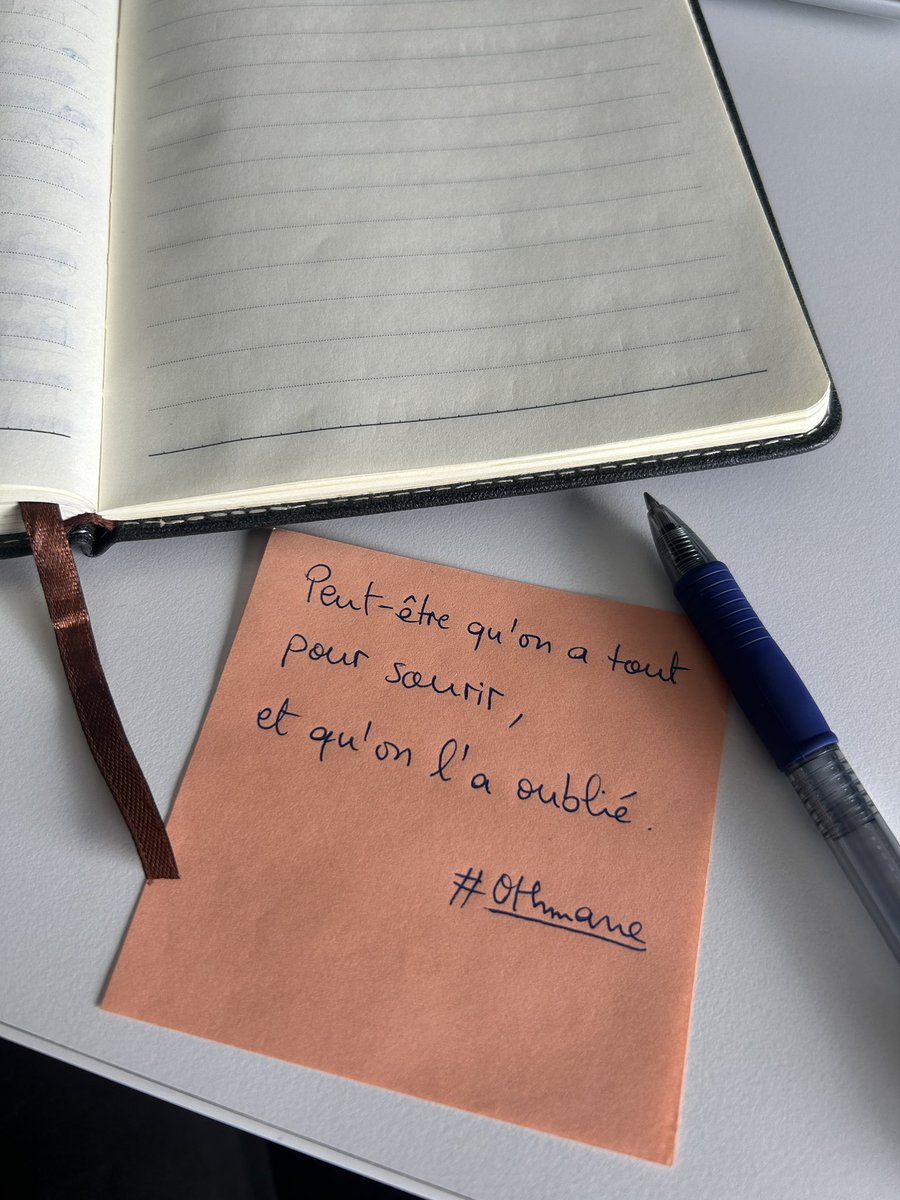 Peut-être qu'on a tout
pour sourir,
et qu'on l'a oublié.
#Othmane